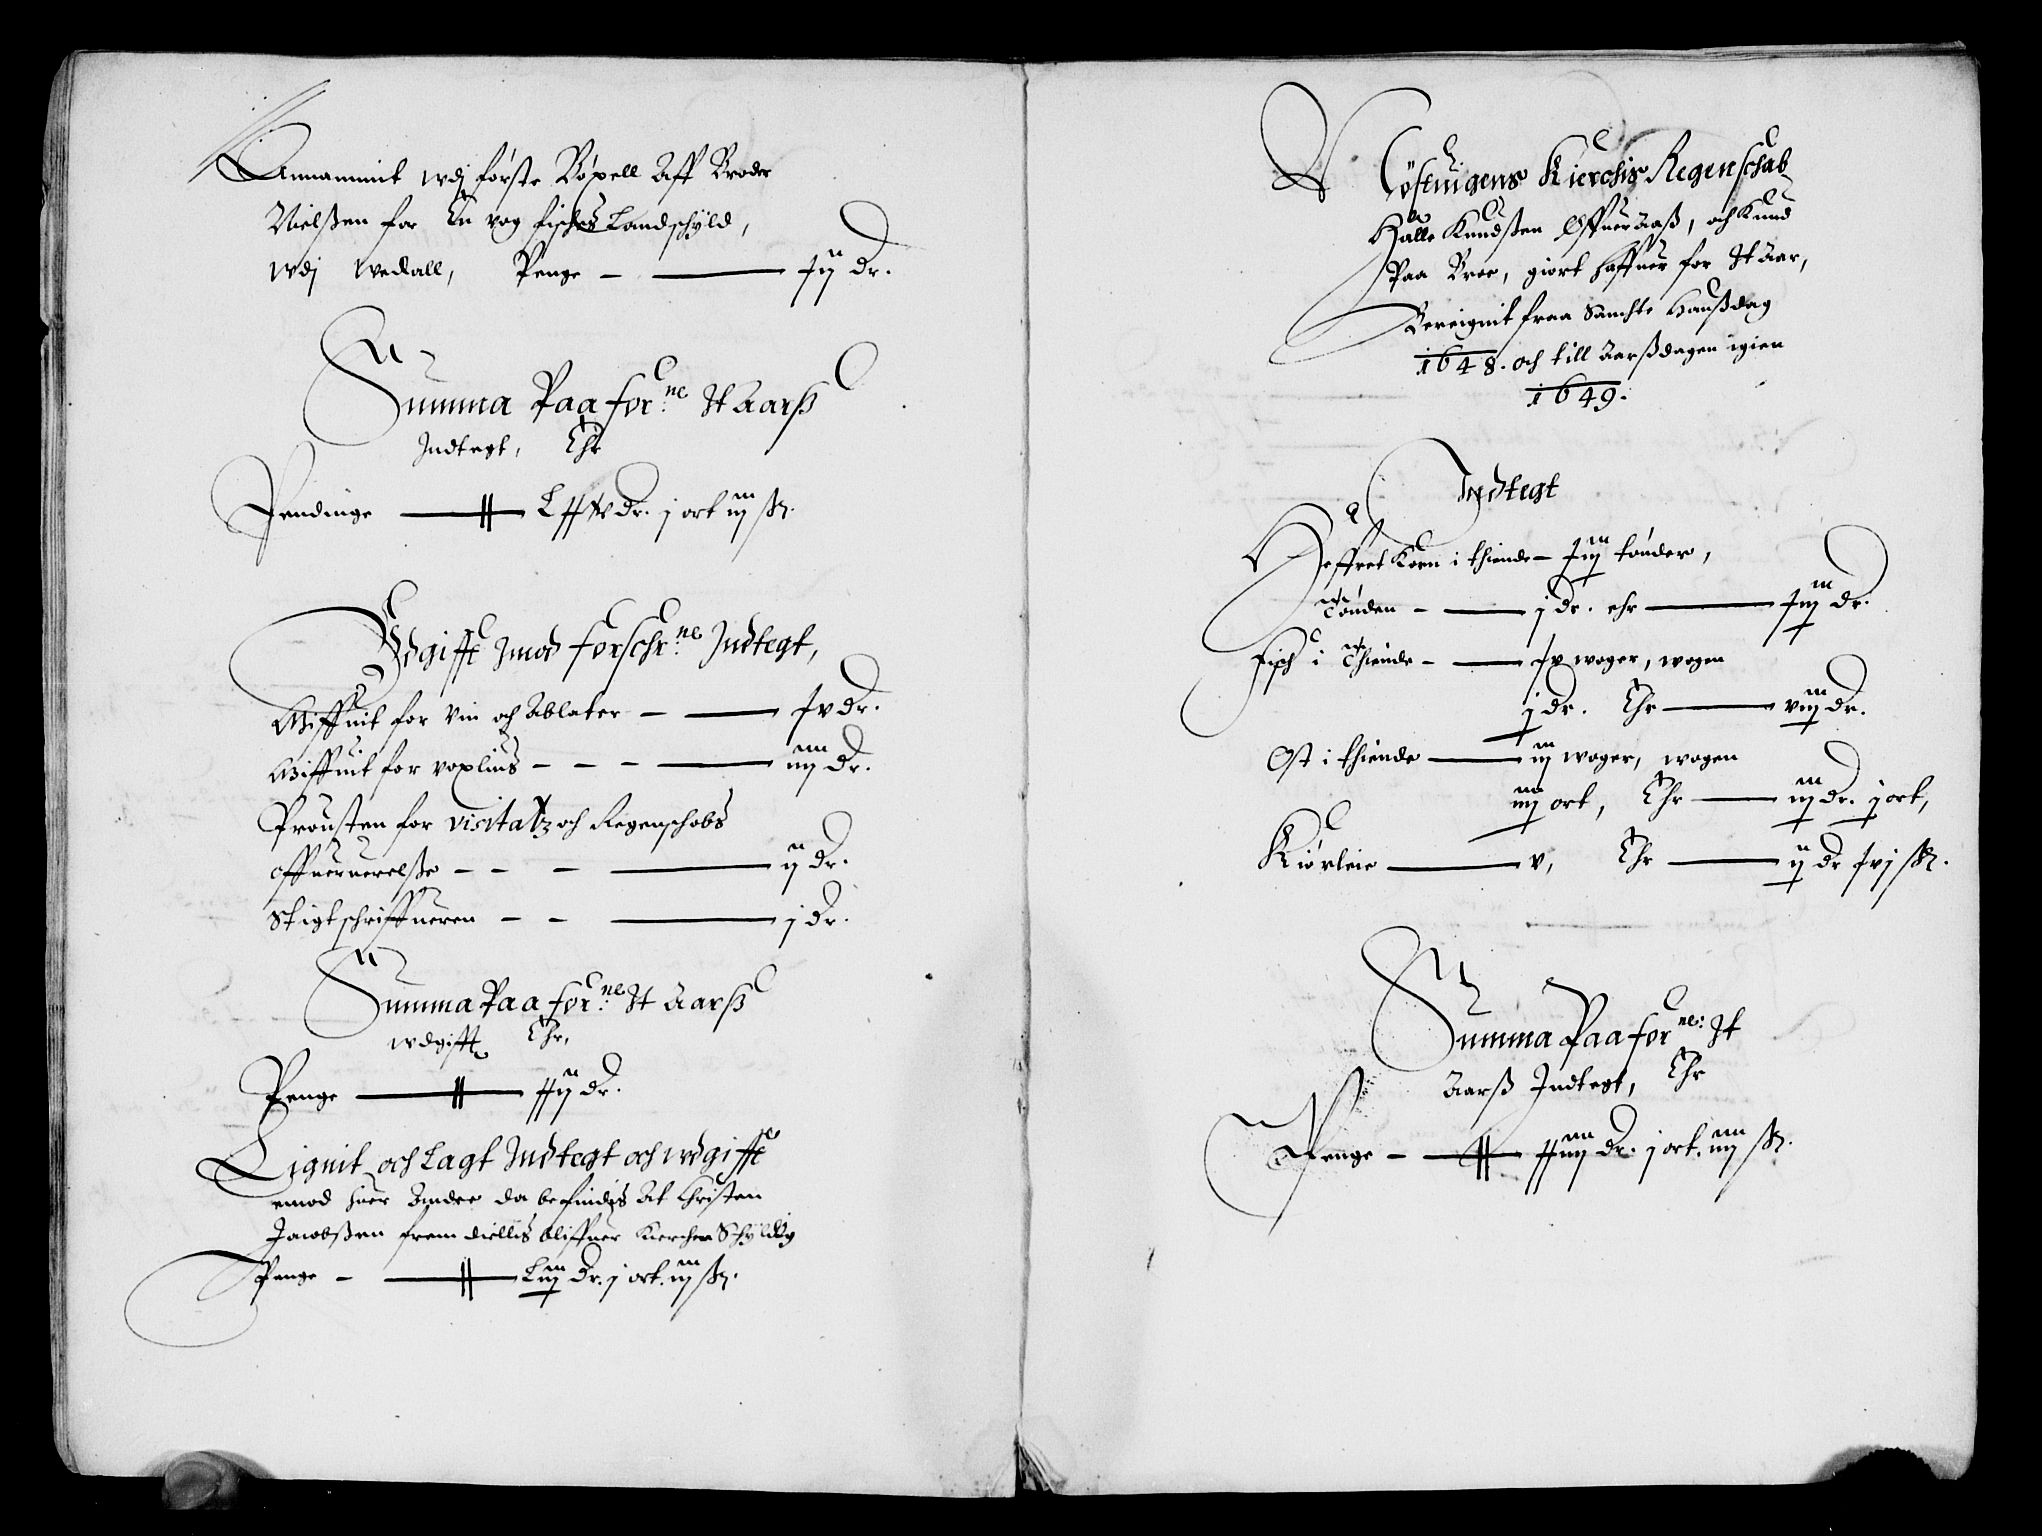 Annammit wdj første Bøxell Aff Broder
Nielßen for En vog fisches Landschyld,
wdj Wedall, Penge — Jij dr.
Summa Paa for:ne It Aarß
Indtegt, Ehr
Pendinge — LJJv dr. j ort iiij ß.
Vdgifft Imod forschr:ne Indtegt,
Giffuit for Vin och Ablater — Jv dr.
Giffuit for voxlius — iiij dr.
Prousten for visitatz och Regenschabs
offueruerelße — ij dr.
Stigtschriffueren — j dr.
Summa Paa for:ne It Aarß
wdgifft Ehr,
Penge — JJij dr.
Lignit och Lagt Indtegt och wdgifft
emod huer Andre da befindis At Christen
Jacobßen frem diellis bliffuer Kierchen Schyldig
Penge — Liij dr. j ort. iiij ß.
Kierchis Regenschab
Halle Knudßen Offueraaß, och Knud
Paa Broe, giort haffuer for It Aar,
Bereignit fraa Sanchte Hanßdag
1648. och till Aarßdagen igien
1649.
Indtegt
Heffret Korn i thiende — Jiij tønder,
Tønden — j dr. ehr — Jiij dr.
Fisch i Thiende — Jv woger, wogen
j dr. Ehr — viij dr.
Ost i thiende — iij woger, wogen
iiij ort, Ehr — iij dr. j ort,
Kiørleie — v, Ehr — ij dr Jvj ß.
Summa Paa for:ne It
Aarß Indtegt, Ehr
Penge — JJiiij dr. j ort. iiij ß.